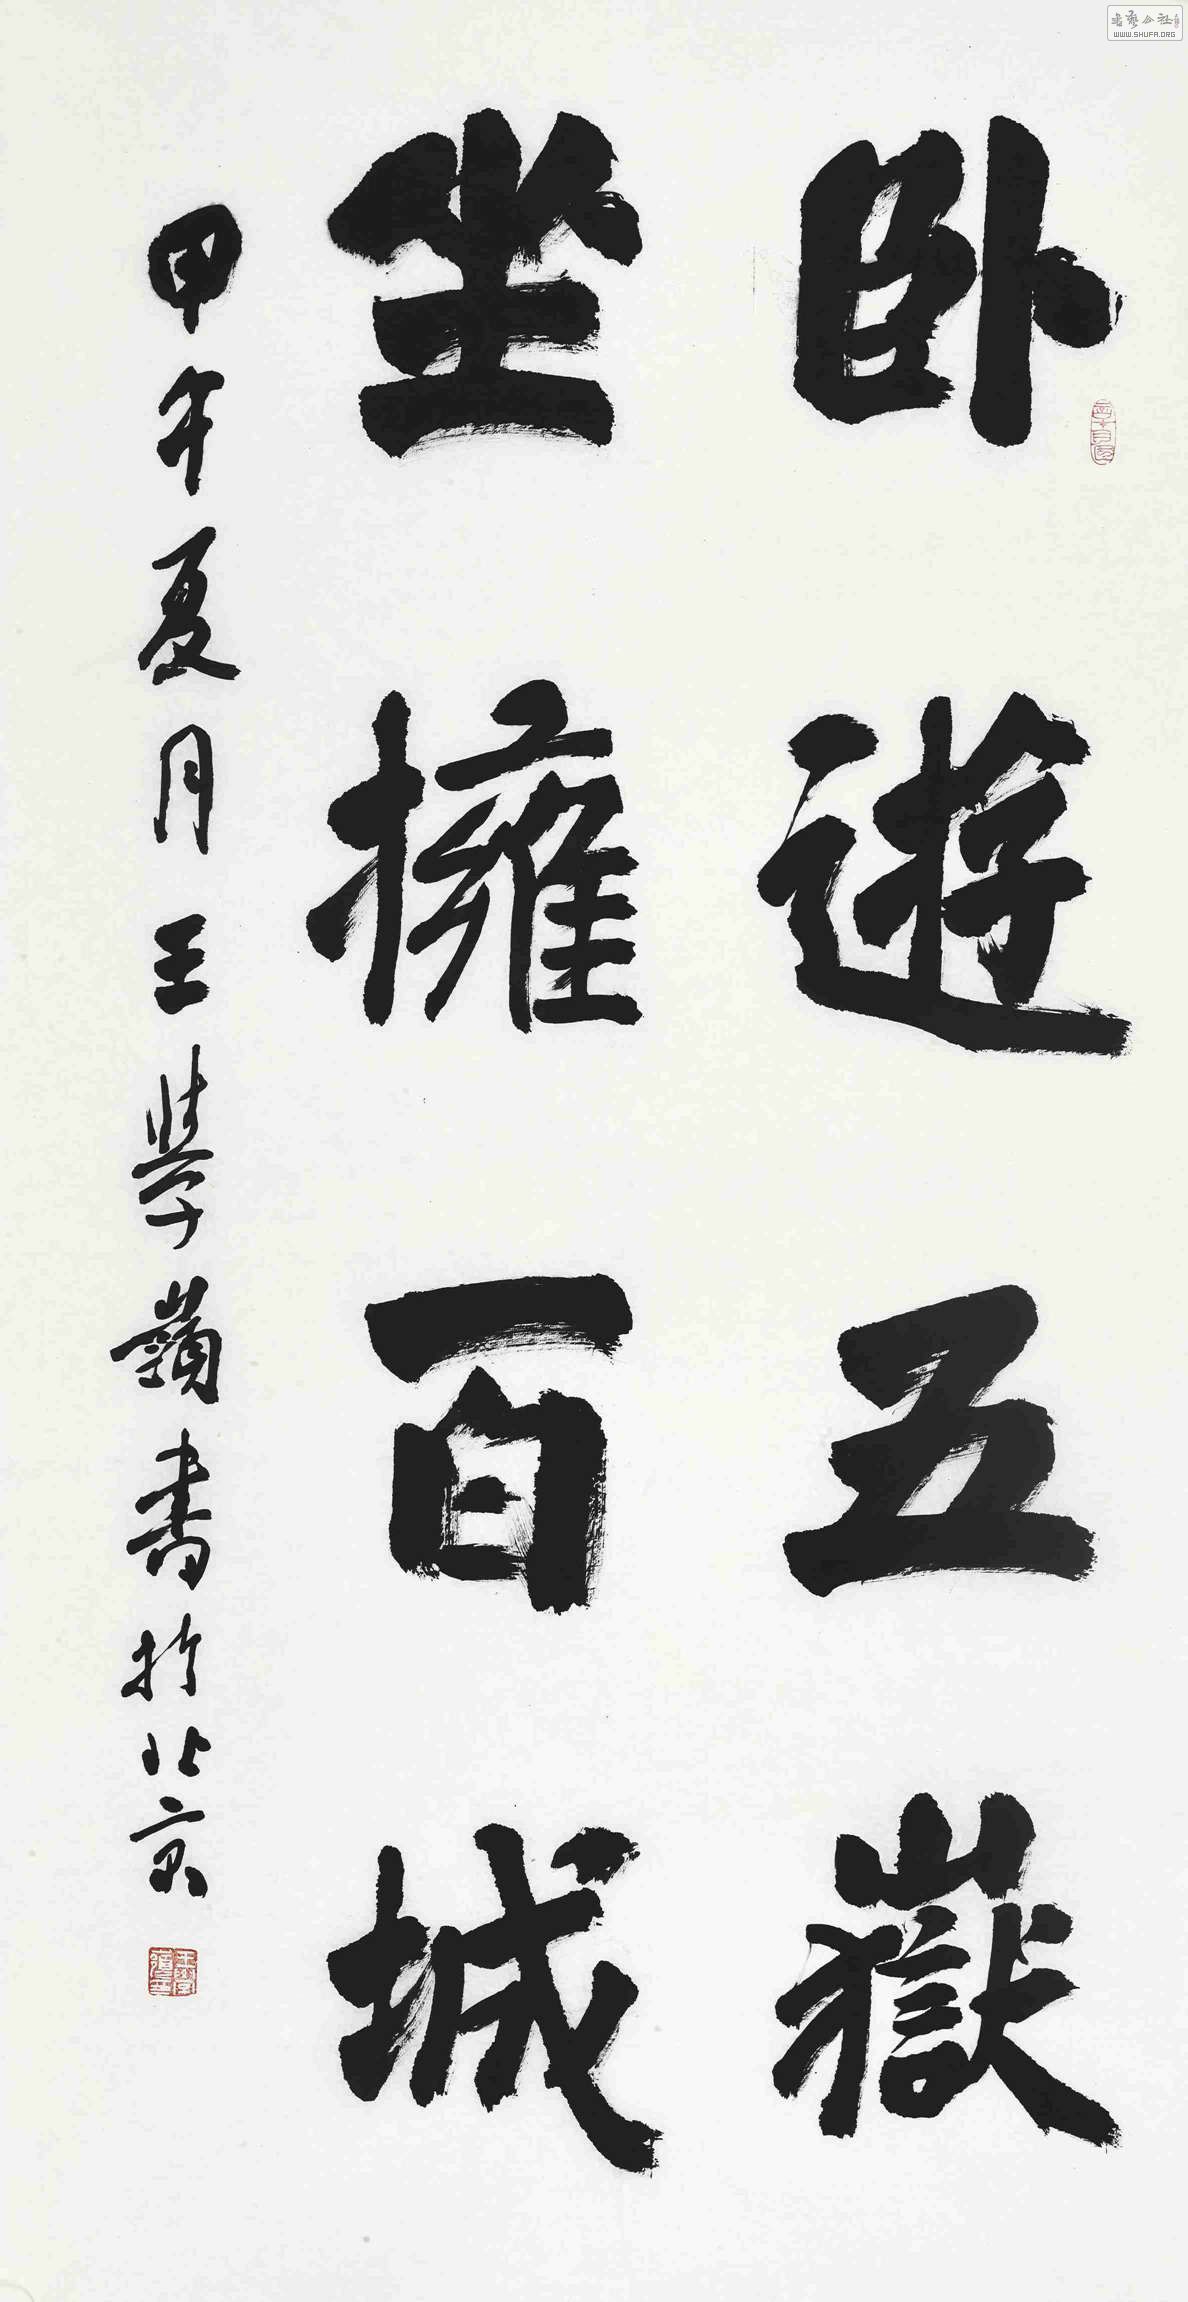 卧遊五嶽
坐擁百城
甲午夏月王學嶺書於北京
王學嶺印
書藝公社
WWW.SHUFA.ORG